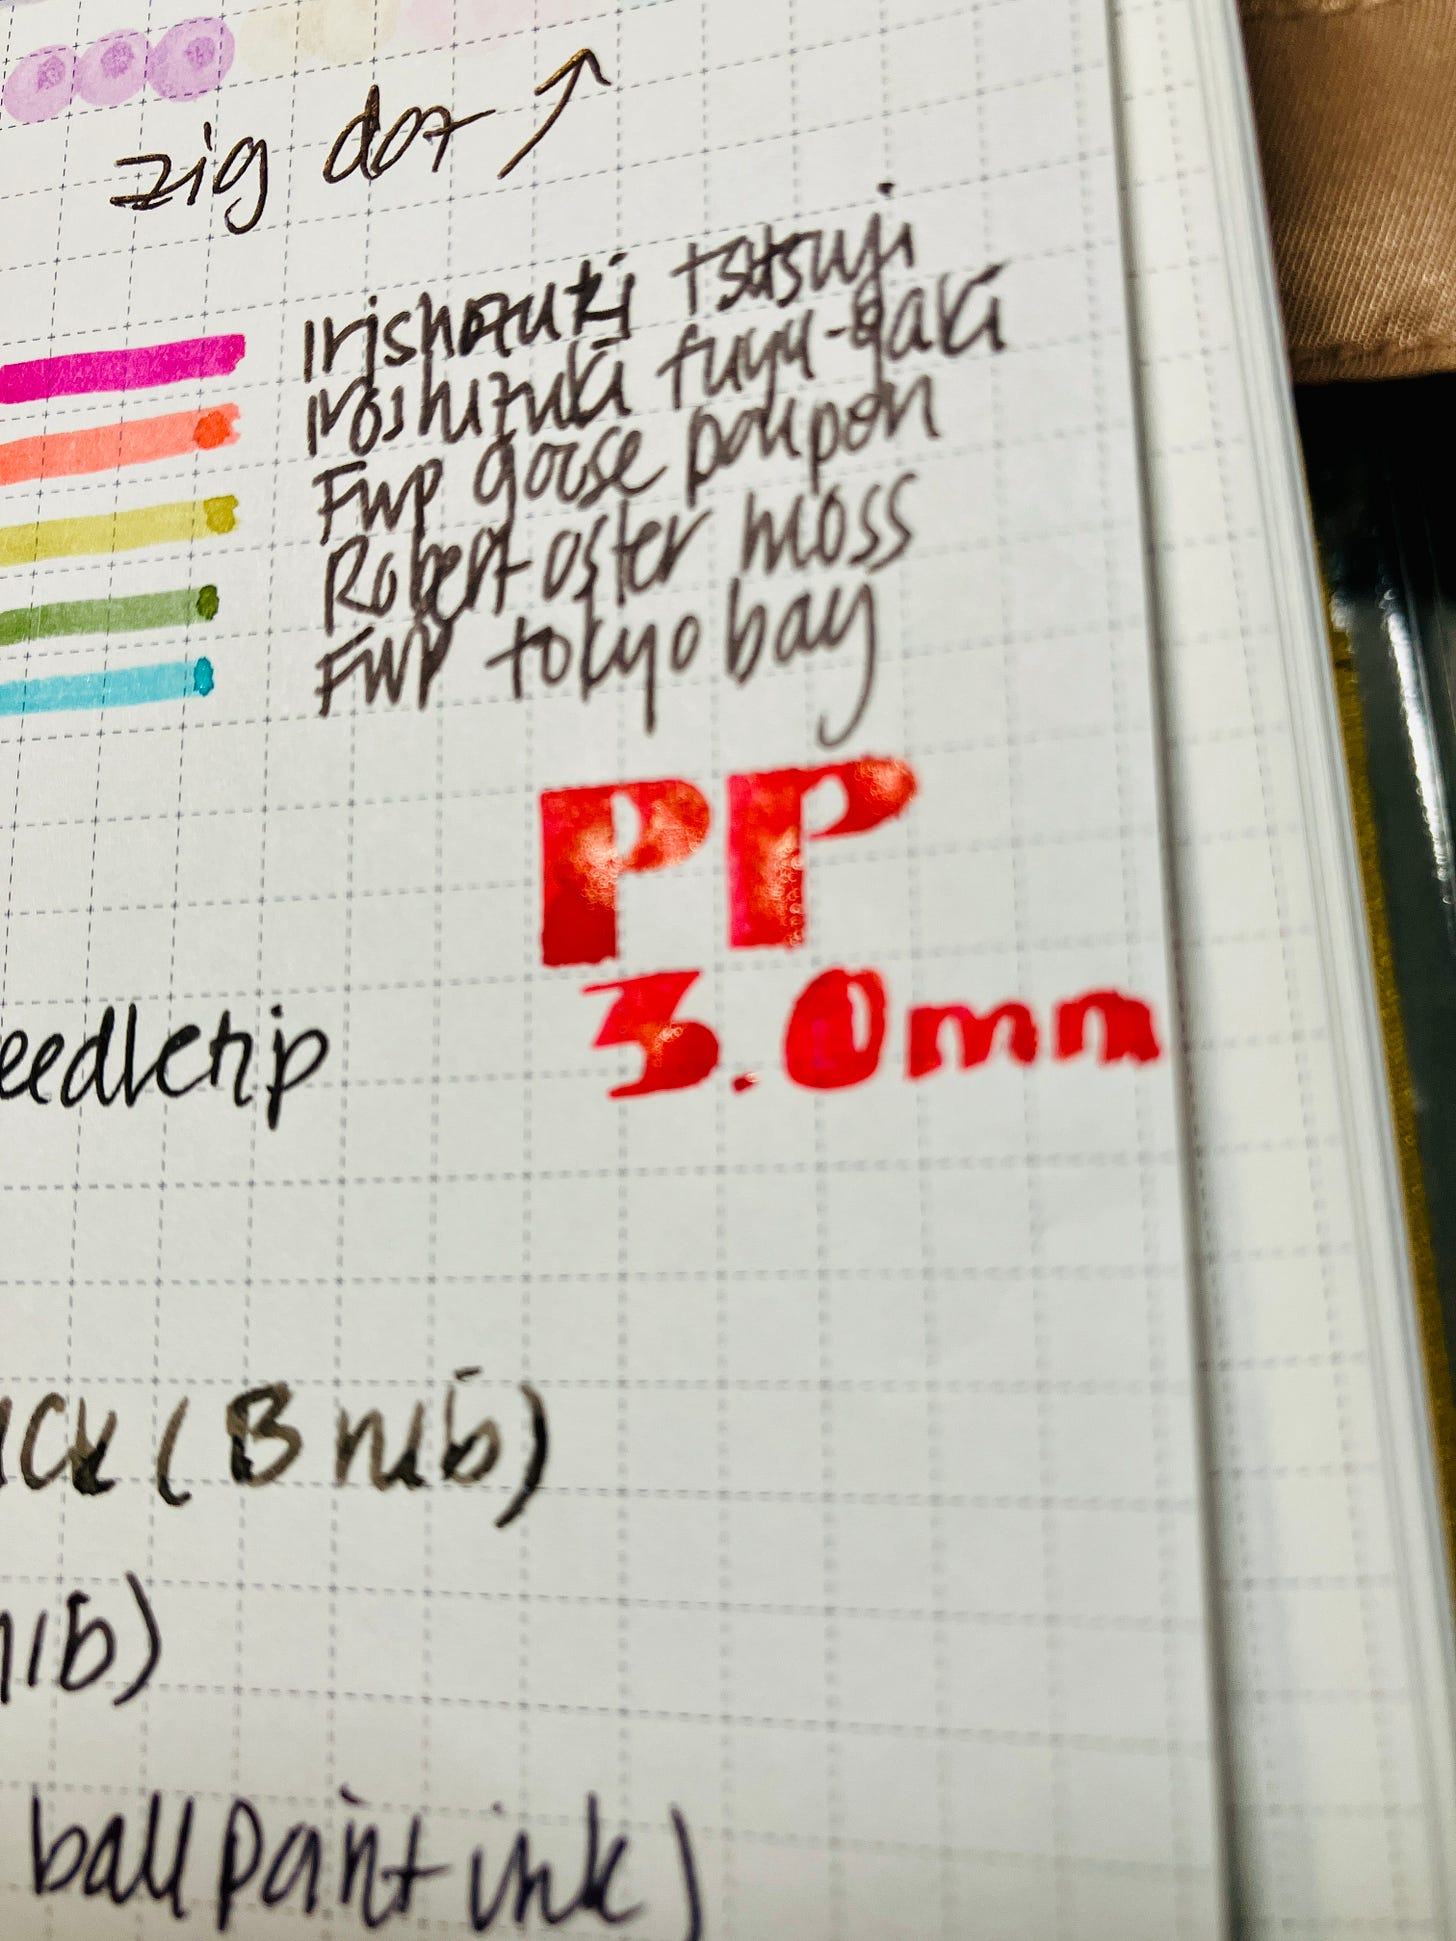 zig dot ↗
Irishozuki tsutsuji
Iroshizuki fuyu-gaki
FWP goose poupon
Robert oster moss
FWP tokyo bay
PP
3.0mm
eedletip
ick (B nib)
nib)
ballpoint ink)